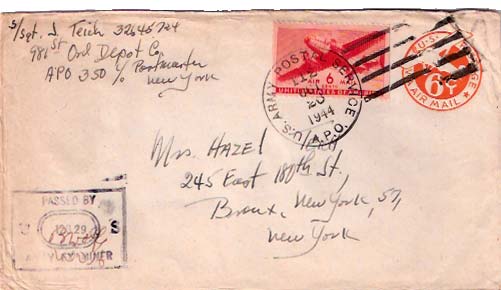 S/Sgt. J. Teich 32645724
981st Ord Depot Co.
APO 350 c/o Postmaster
New York
U.S. ARMY POSTAL SERVICE
1944
A.P.O.
AIR 6 MAIL
CENTS
UNITED STATES OF AMERICA
U.S. POSTAGE
6¢
AIR MAIL
Mrs. HAZEL
245 East 180th St.,
Bronx, New York, 57,
New York
PASSED BY
U S
ARMY EXAMINER